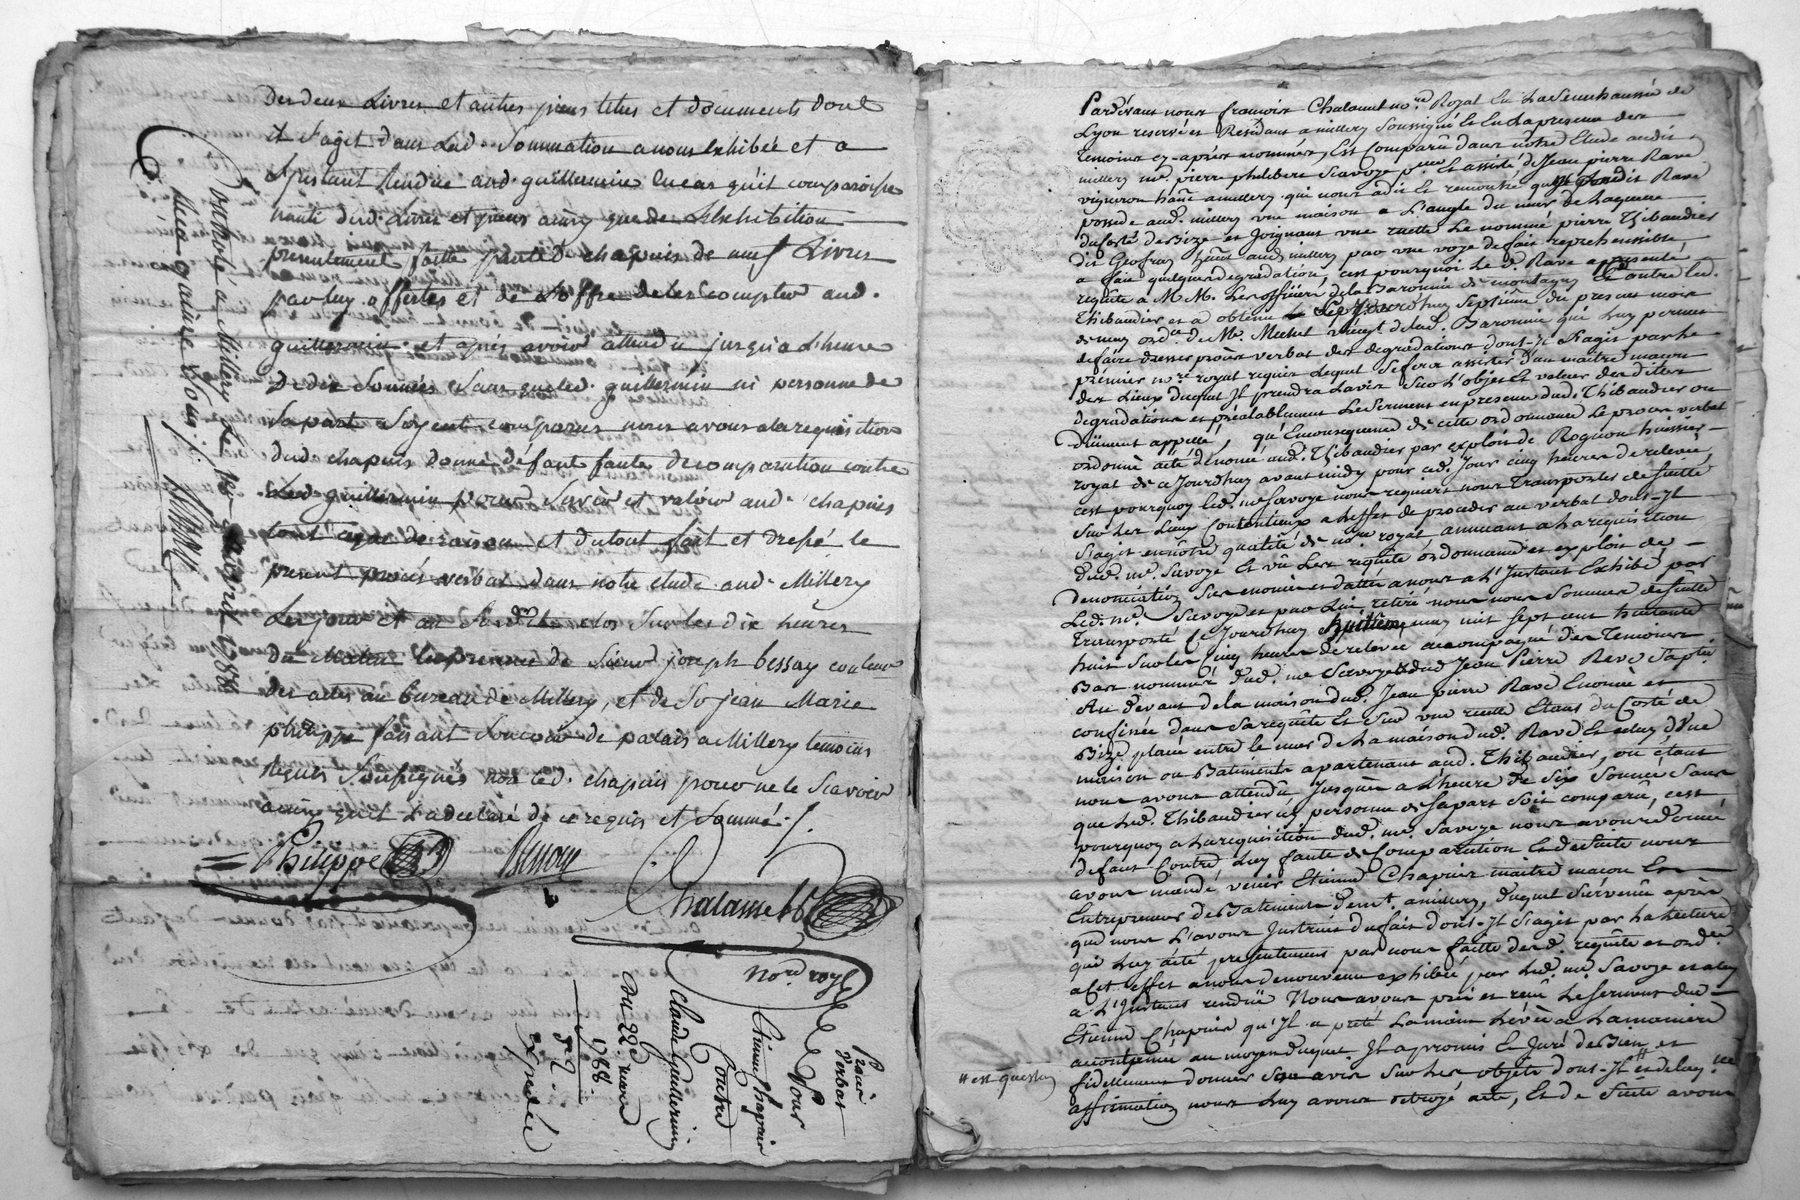 Des deux Livres et autres pieces titres et documents dont
Il S'agit dans Lad. Sommation a nous Exhibée et a
L'Instant Rendüe aud. guillermin en cas qu'il comparoisse
nanti dud. Livre et pieces ainsy que de L'Exhibition
presentement faitte par led. chapuis de neuf Livres
par luy offertes et de L'offre de les compter aud.
guillermin. et après avoir attendu jusqu'a L'heure
de dix Sonnées Sans que led. guillermin ni personne de
Sa part Soyent comparus nous avons a la requisition
dud. chapuis donné défaut faute de comparution contre
Led. guillermin pour Servir et valoir aud. chapuis
tout ce que de raison et du tout fait et dressé le
present procès verbal dans notre etude aud. Millery
Les jour et an Susd. clos Sur les dix heures
du Matin En presence de Sieur joseph bessay
des actes au bureau de Millery, et de Sr jean Marie
philippe faisant Fonction de palais a Millery temoins
requis Soussignés non led. chapuis pour ne le Scavoir
ainsy qu'il L'a declaré de ce requis et Sommé ./.
Philippe Bessay
Chalamel
Nore. royl.
Controlé a Millery Le 1788
Reçu quinze Sous ./.
Procès
Verbal
Pour
Etienne Chapuis
Contre
Claude Guillermin
Du 22e mars
1788.
Expedié
Pardevant nous françois Chalamel nore. Royal En La Senechaussée de
Lyon reservé et Residant a millery Soussigné Et En La presence des
temoins cy-après nommés, Est Comparû dans notre Etude audit
millery me. pierre philibert Savoye pr. Et assisté de Jean pierre Rave
vigneron hant. a millery. qui nous a dit Et remontré que led. Rave
possede aud. millery une maison a L'angle du mur
du Costé de Bize et Joignant une ruelle Le nommé pierre Thibaudier
dit Geofray aud. millery par une voye de fait reprehensible,
a fait quelques degradations, c'est pourquoi Le d. Rave a presenté
requête a M. M. Les officiers de la Baronnie de montagny Contre Led.
Thibaudier et a obtenu Le Jourdhuy Septieme du present mois
de may ordce. de Mr. de Lad. Baronnie qui Luy permet
de faire dresser procès verbal des degradations dont-Il S'agit par le
premier nore. royal requis Lequel Se fera assister d'un maitre macon
des Lieux duquel Il prendra Lavis Sur L'objet Et valeur desdites
degradations et préalablement Le Serment en presence dud. Thibaudier ou
Düement appellé, qu'En consequence de cette ordonnance Le procès verbal
ordonné a été dénoncé aud. Thibaudier par exploit de Rognon huissier
royal de ce Jourdhuy avant midy pour ced. Jour cinq heures de relevée,
c'est pourquoy Led. me. Savoye nous requiert nous Transporter de Suitte
Sur Les Lieux Contentieux a L'effet de proceder au verbal dont-Il
S'agit en nôtre qualité de nore. royal, annuant a La requisition
dud. me. Savoye Et vû Les requête ordonnance et exploit de
denonciation Sus enoncés et dattés a nous a L'Instant Exhibé par
Led. me. Savoye et par Lui retiré nous nous Sommes de Suitte
Transporté Ce Jourdhuy huitieme may mil Sept cent huitante
huit Sur Les Cinq heures de relevée accompagné des Temoins
Bas nommés dud. me. Savoye & dud. Jean Pierre Rave
Au devant de la maison dud. Jean pierre Rave Enoncée et
confinée dans Sa requête Et Sur une ruelle Etant du Costé de
Bize placée entre Le mur de La maison dud. Rave Et celuy d'une
maison ou Batiments apartenant aud. Thibaudier, où étant
nous avons attendu Jusqu'a L'heure de Six Sonnée Sans
que Led. Thibaudier ny personne de Sa part Soit comparû, c'est
pourquoy a La requisition dud. me. Savoye nous avons donné
defaut Contre Luy faute de Comparution Et de Suite nous
avons mandé venir Etienne Chapuis maitre macon Et
Entrepreneur de Batiments demt. a millery, duquel Survenû après
que nous L'avons Instruit du fait dont-Il S'agit par La Lecture
qui Luy a été presentement par nous faitte desd. requête et ordce.
a Cet effet a nous de nouveau exhibée par Led. me. Savoye et a luy
a L'Instant rendüe Nous avons pris et reçû Le Serment dud.
Etienne Chapuis qu'Il a preté La main Levée a La maniere
accoutumée au moyen duquel Il a promis Et Juré de Bien et
fidellement donner Son avis Sur Les objets dont-Il # et de lad.
# est question
affirmation nous Luy avons octroyé acte, Et de Suite avons